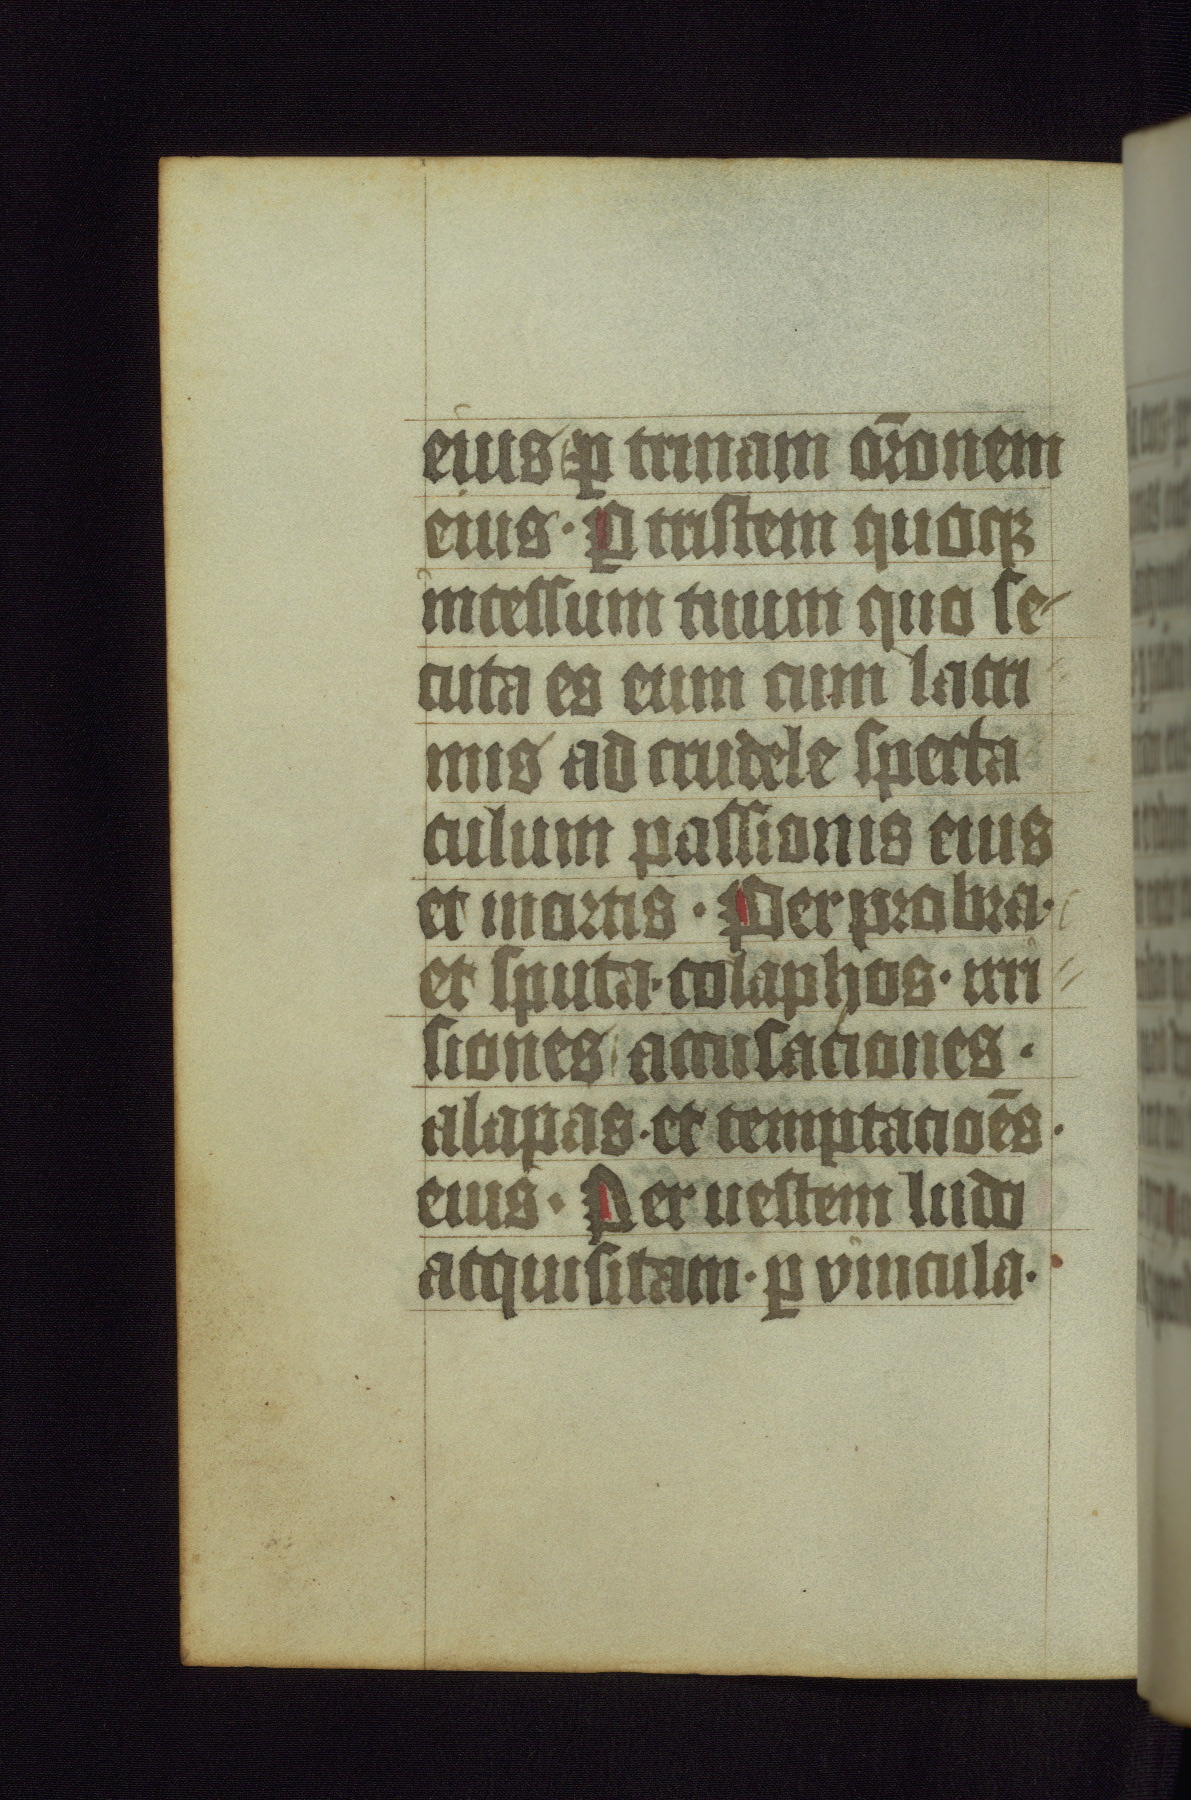 eius ꝑ trinam or̄onem
eius · Ꝑ tristem quoqꝫ
incessum tuum quo se-
cuta es eum cum lacri
mis ad crudele specta
culum passionis eius
et mortis · Per probra·
et sputa· colaphos· irri
siones accusaciones ·
alapas· et temptacioēs·
eius · Per uestem ludo
acquisitam· ꝑ vincula·